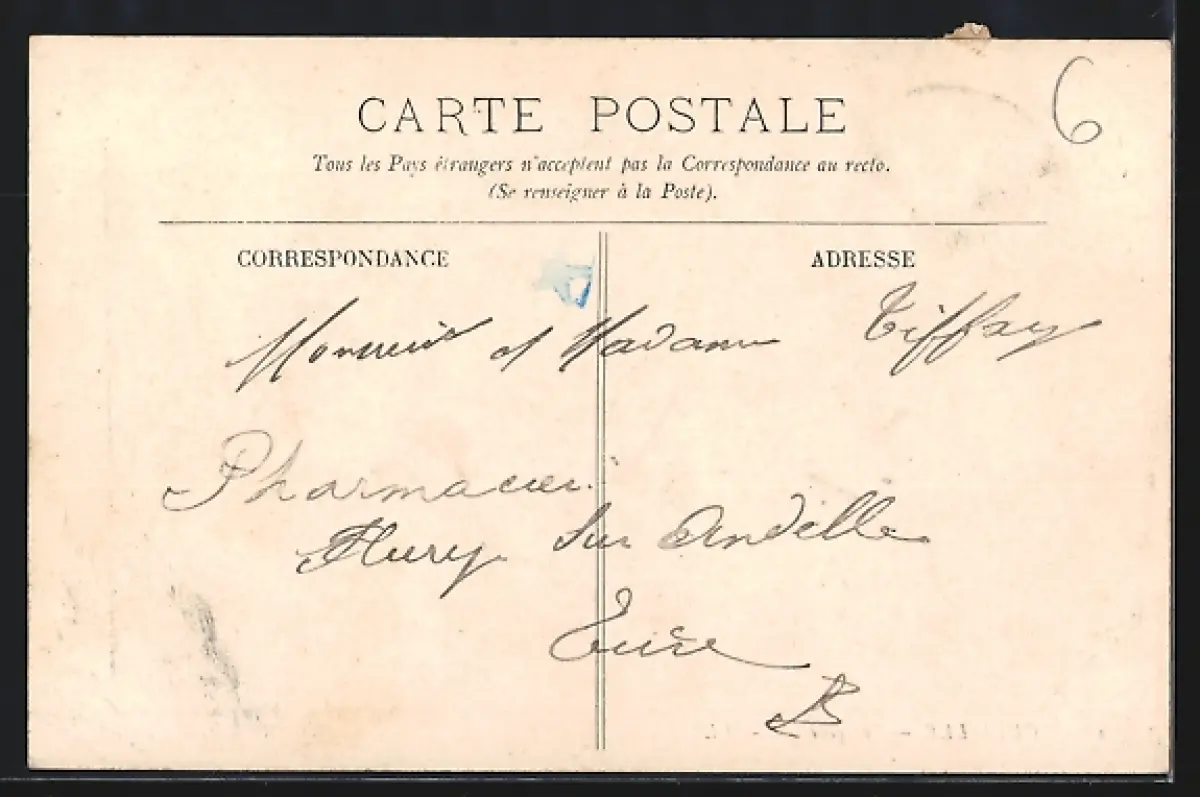 6
CARTE POSTALE
Tous les Pays étrangers n'acceptent pas la Correspondance au recto.
(Se renseigner à la Poste).
CORRESPONDANCE
ADRESSE
Monsieur et Madame Tiffay
Pharmacien
Fleury sur Andelle
Eure